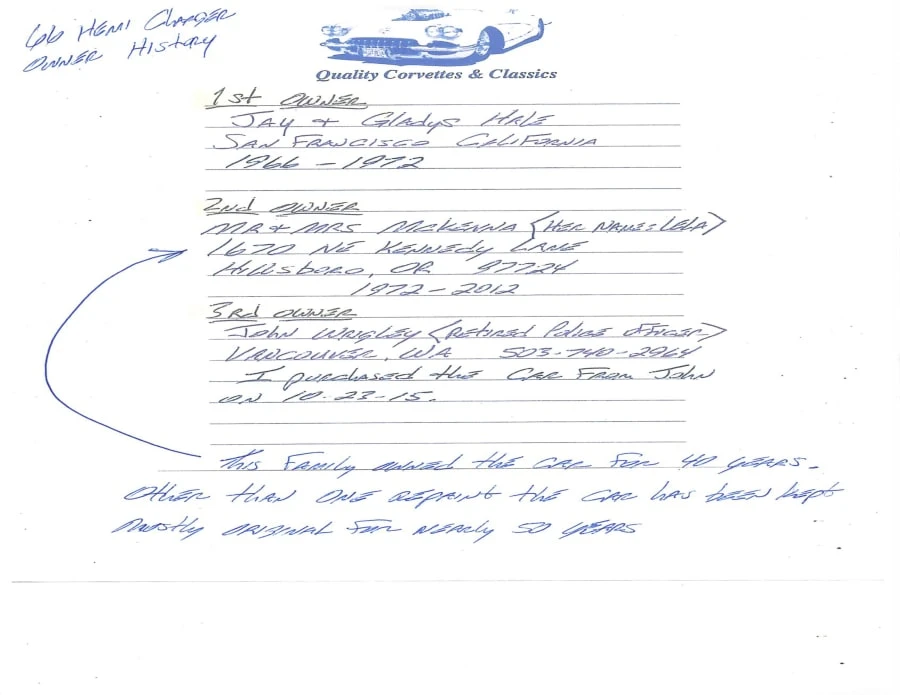 66 HEMI CHARGER
OWNER HISTORY
Quality Corvettes & Classics
1st OWNER
JAY + GladyS HALE
SAN FRANCISCO CALIFORNIA
1966 - 1972
2nd OWNER
MR + MRS MCKENNA (HER NAME: LELA)
1670 NE KENNEDY LANE
HILLSboRO, OR 97724
1972 - 2012
3Rd OWNER
JOHN WRIGLEY (RETIRED POLICE OFFICER)
VANCOUVER, WA 503-740-2964
I puRCHASEd thE CAR FROM JOHN
ON 10-23-15.
thIS FAMILY OWNED thE CAR FOR 40 YEARS.
OTHER thAN ONE REPAINT thE CAR hAS bEEN KEpt
MOStly ORIGINAL FOR NEARLY 50 YEARS